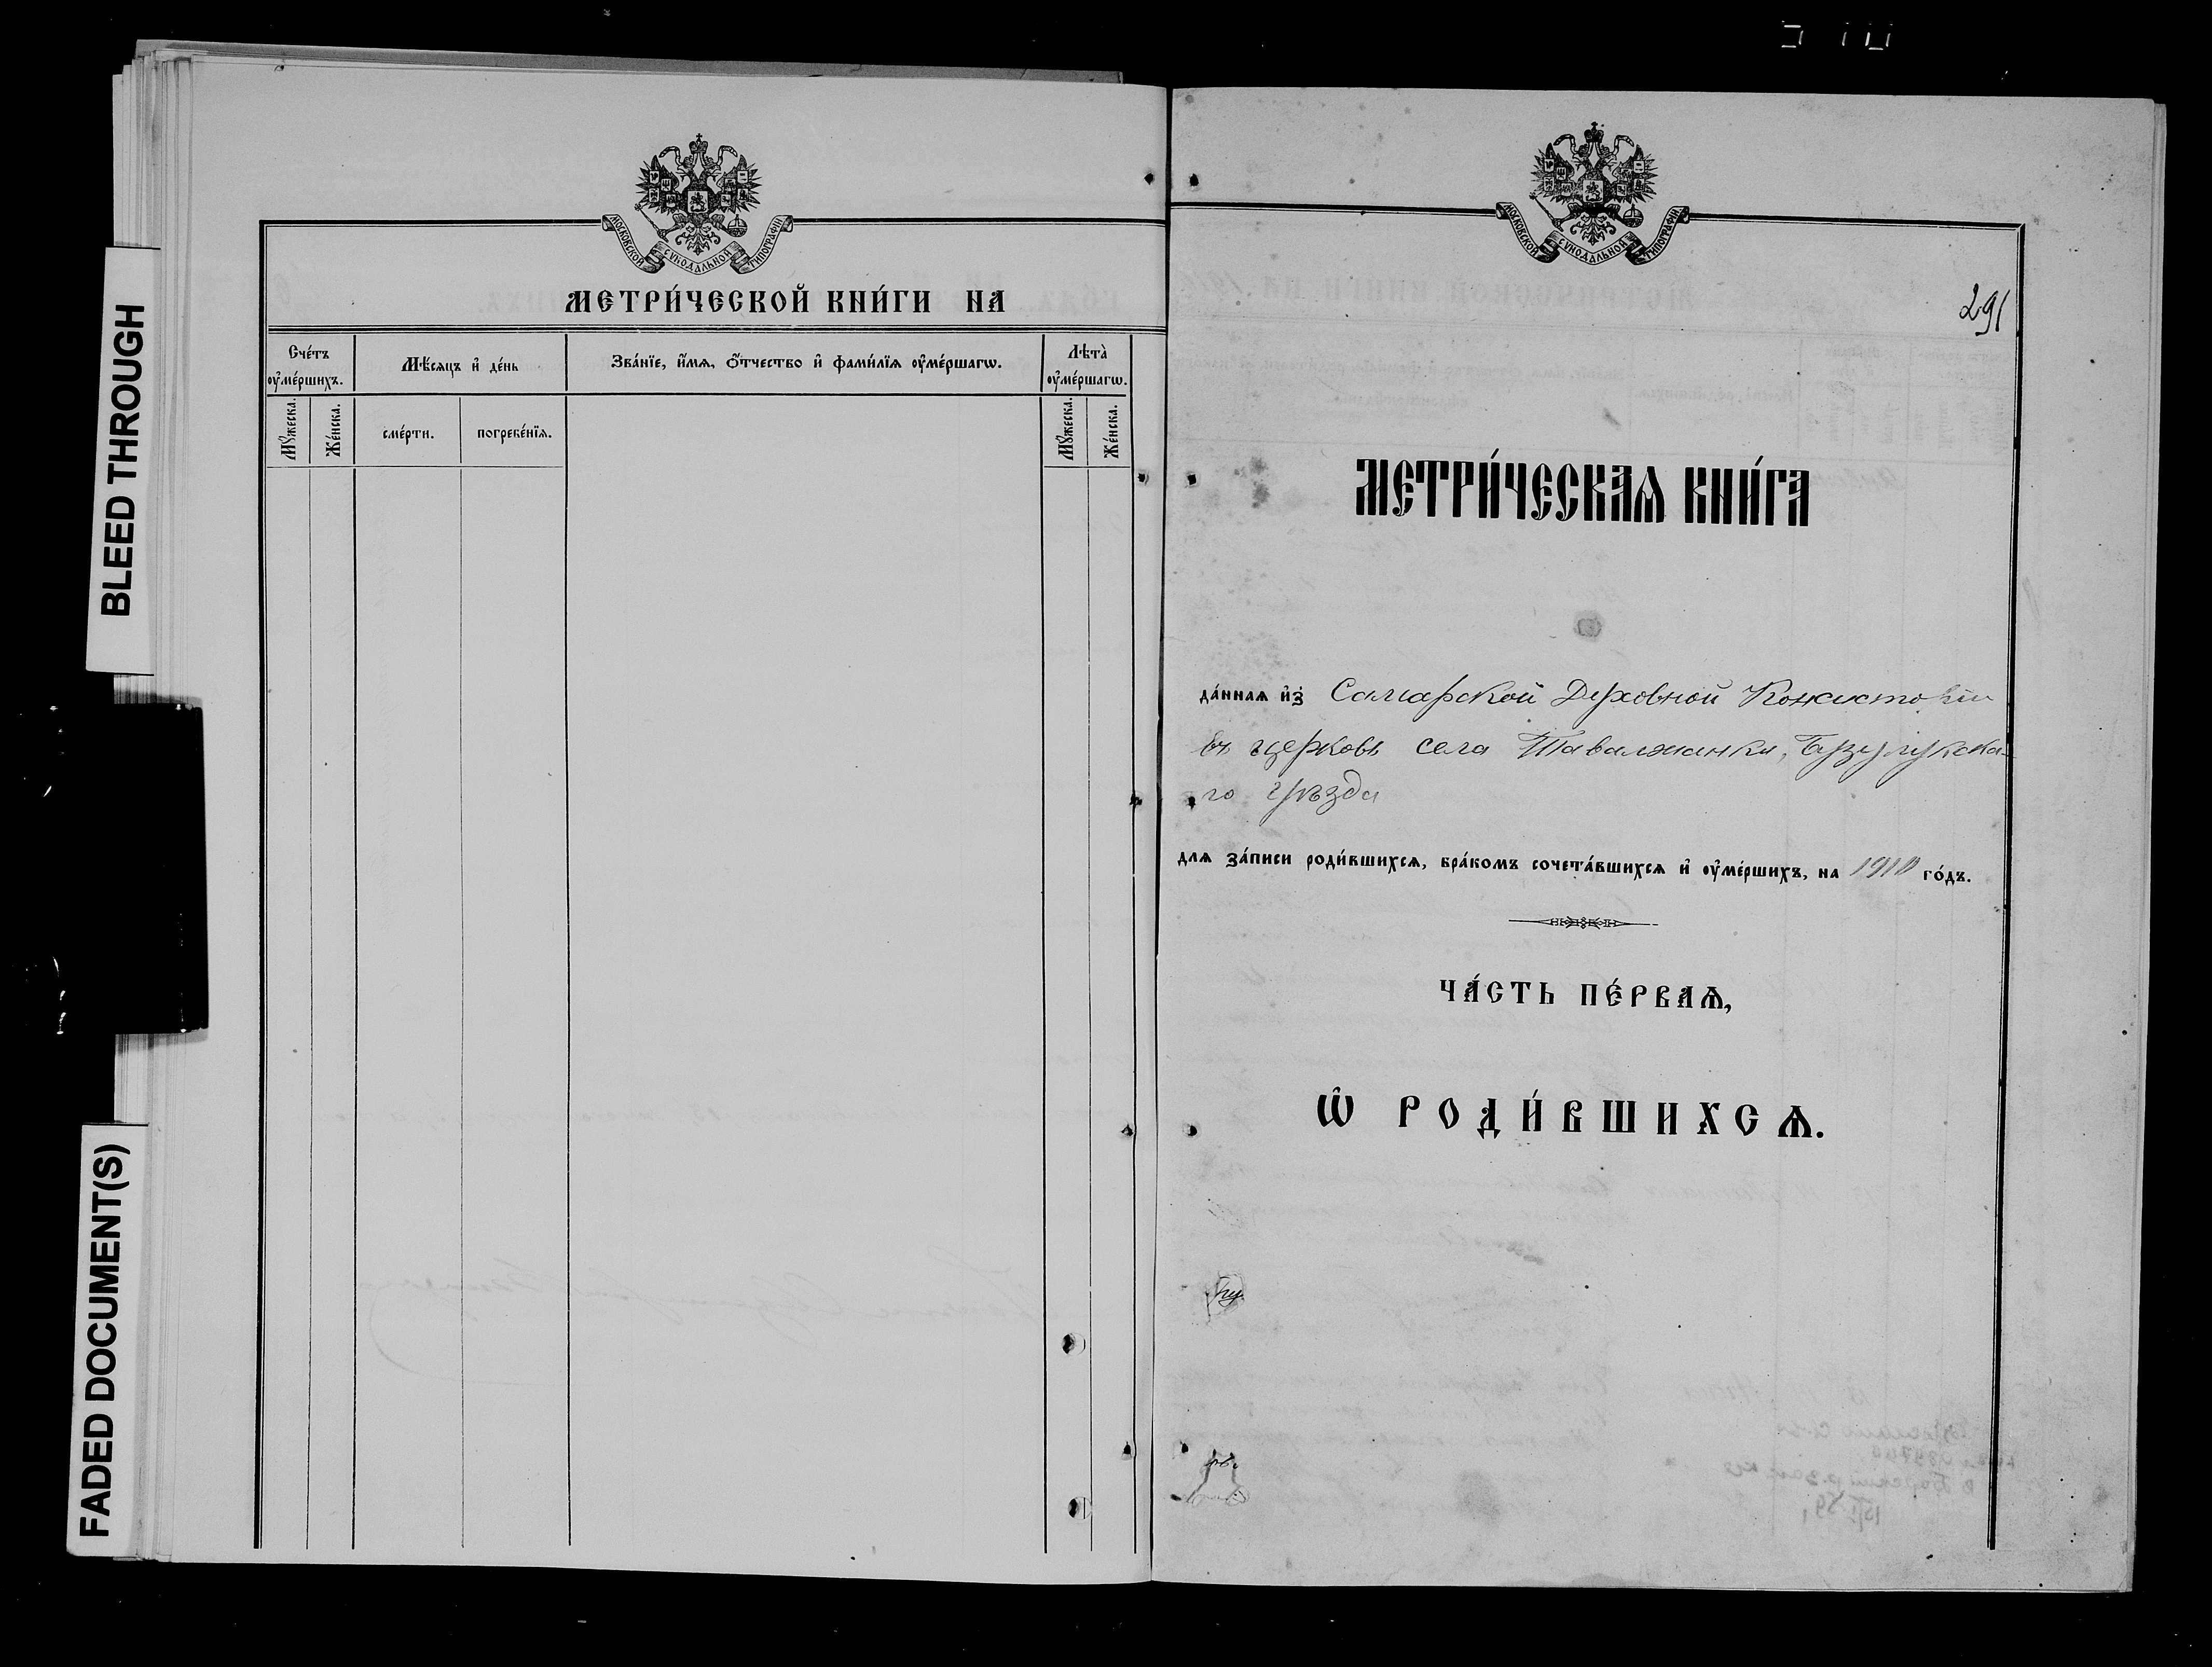 BLEED THROUGH
FADED DOCUMENT(S)
МОСКОВСКОЙ СѴНОДАЛЬНОЙ ТИПОГРАФІИ
МЕТРИ́ЧЕСКОЙ КНИ́ГИ НА
Сче́тъ ᲂу҆ме́ршихъ.
Мѣ́сѧцъ и҆ де́нь
Зва́нїе, и҆́мѧ, ѻ҆́тчество и҆ фами́лїѧ ᲂу҆ме́ршагѡ.
Лѣта̀ ᲂу҆ме́ршагѡ.
Мꙋ́жеска.
Же́нска.
сме́рти.
погребе́нїѧ.
Мꙋ́жеска.
Же́нска.
МОСКОВСКОЙ СѴНОДАЛЬНОЙ ТИПОГРАФІИ
291
МЕТРИ́ЧЕСКАѦ КНИ́ГА
да́ннаѧ и҆з̾ Самарской Духовной Консисторіи
въ церковь села Таволжанки, Бузулукска-
го уѣзда
длѧ за́писи роди́вшихсѧ, бра́комъ сочета́вшихсѧ и҆ ᲂу҆ме́ршихъ, на 1910 го́дъ.
ЧА́СТЬ ПЕ́РВАѦ,
Ѽ РОДИ́ВШИХСѦ.